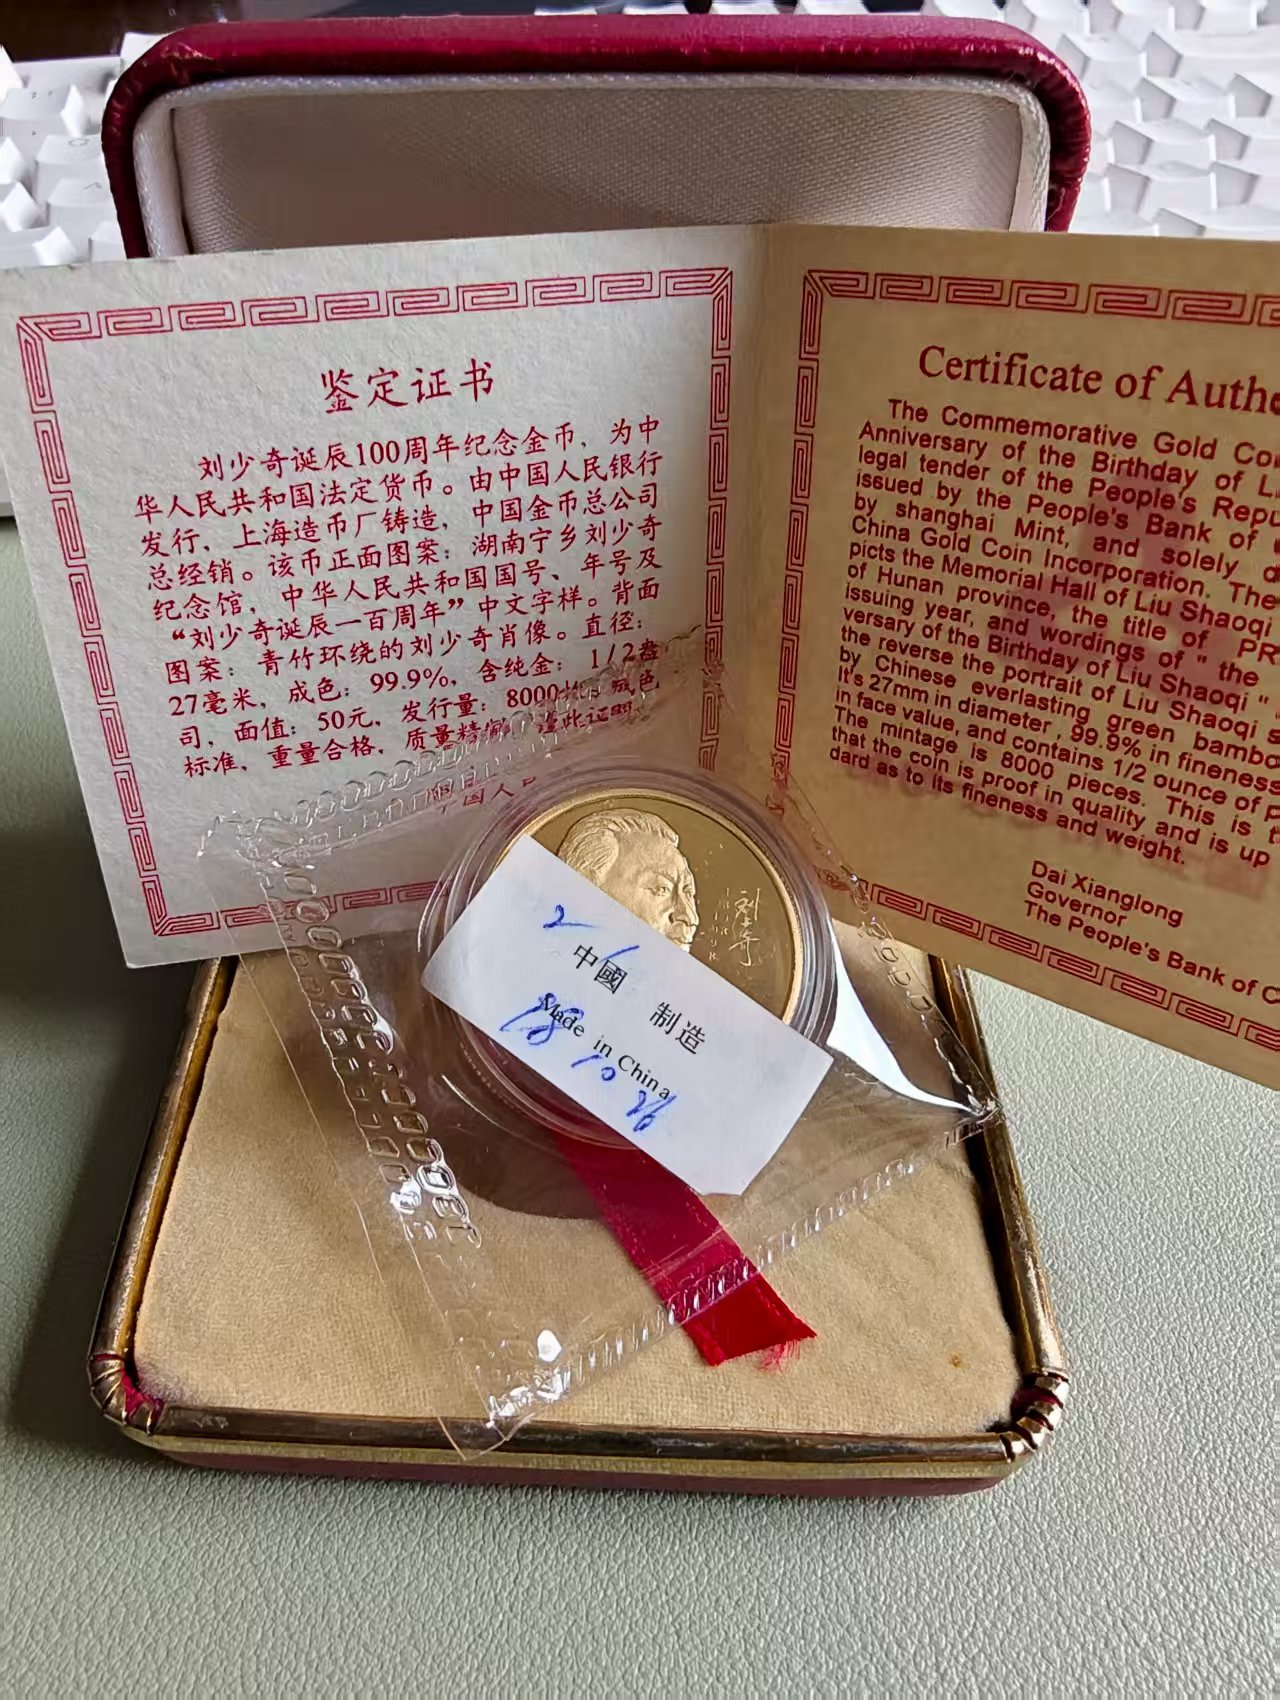 鉴定证书
刘少奇诞辰100周年纪念金币，为中
华人民共和国法定货币。由中国人民银行
发行，上海造币厂铸造，中国金币总公司
总经销。该币正面图案：湖南宁乡刘少奇
纪念馆，中华人民共和国国号、年号及
“刘少奇诞辰一百周年”中文字样。背面
图案：青竹环绕的刘少奇肖像。直径：
27毫米，成色：99.9%，含纯金：1/2盎
司，面值：50元，发行量：8000枚。成色
标准，重量合格，质量精制。谨此证明。
中国人民
Certificate of Authe
The Commemorative Gold Coi
Anniversary of the Birthday of Li
legal tender of the People's Repu
issued by the People's Bank of
by shanghai Mint, and solely d
China Gold Coin Incorporation. The
picts the Memorial Hall of Liu Shaoqi
of Hunan province, the title of PR
issuing year, and wordings of " the
versary of the Birthday of Liu Shaoqi "
the reverse the portrait of Liu Shaoqi s
by Chinese everlasting green bambo
It's 27mm in diameter, 99.9% in fineness
in face value, and contains 1/2 ounce of p
The mintage is 8000 pieces. This is t
that the coin is proof in quality and is up
dard as to its fineness and weight.
Dai Xianglong
Governor
The People's Bank of C
刘少奇
1898-1998
中國 制造
Made in China